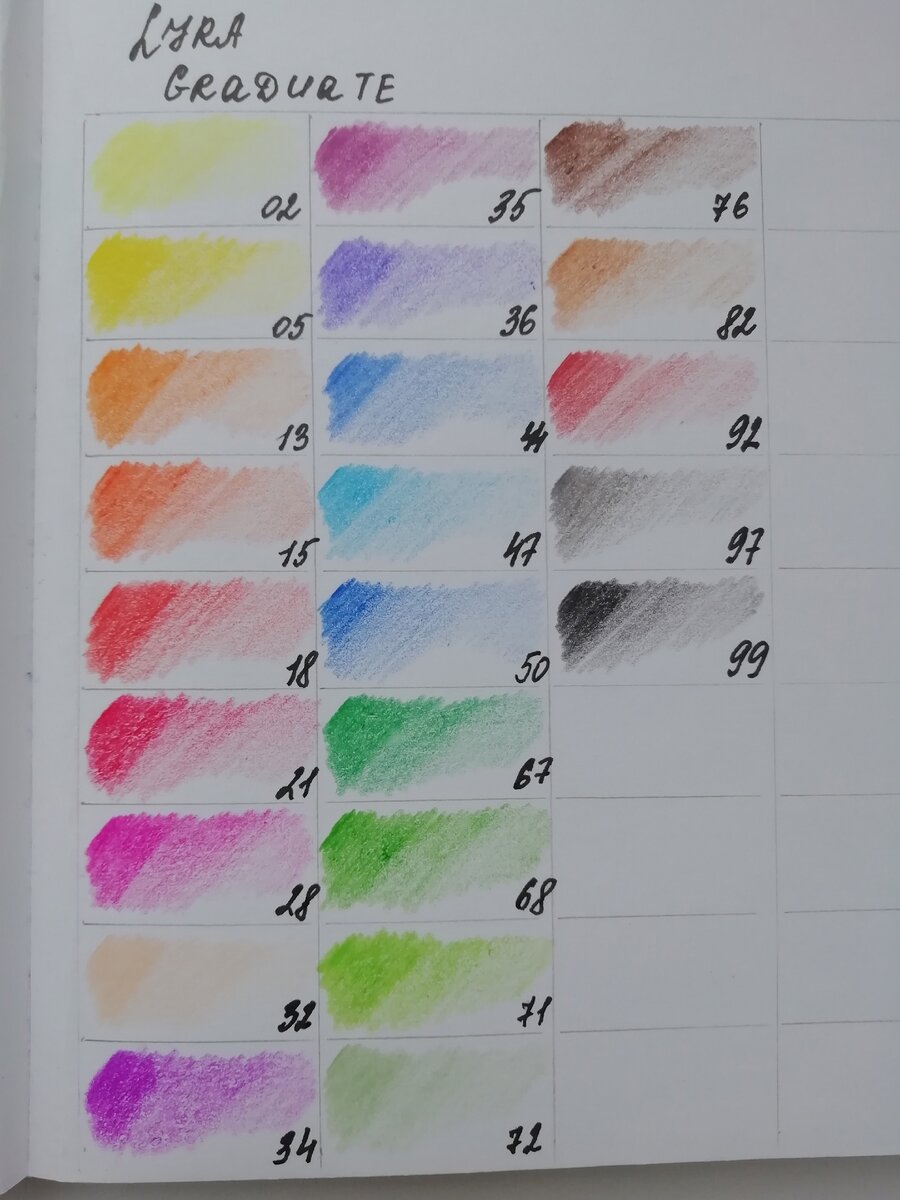 LYRA
GRADUATE
02
05
13
15
18
21
28
32
34
35
36
44
47
50
67
68
71
72
76
82
92
97
99